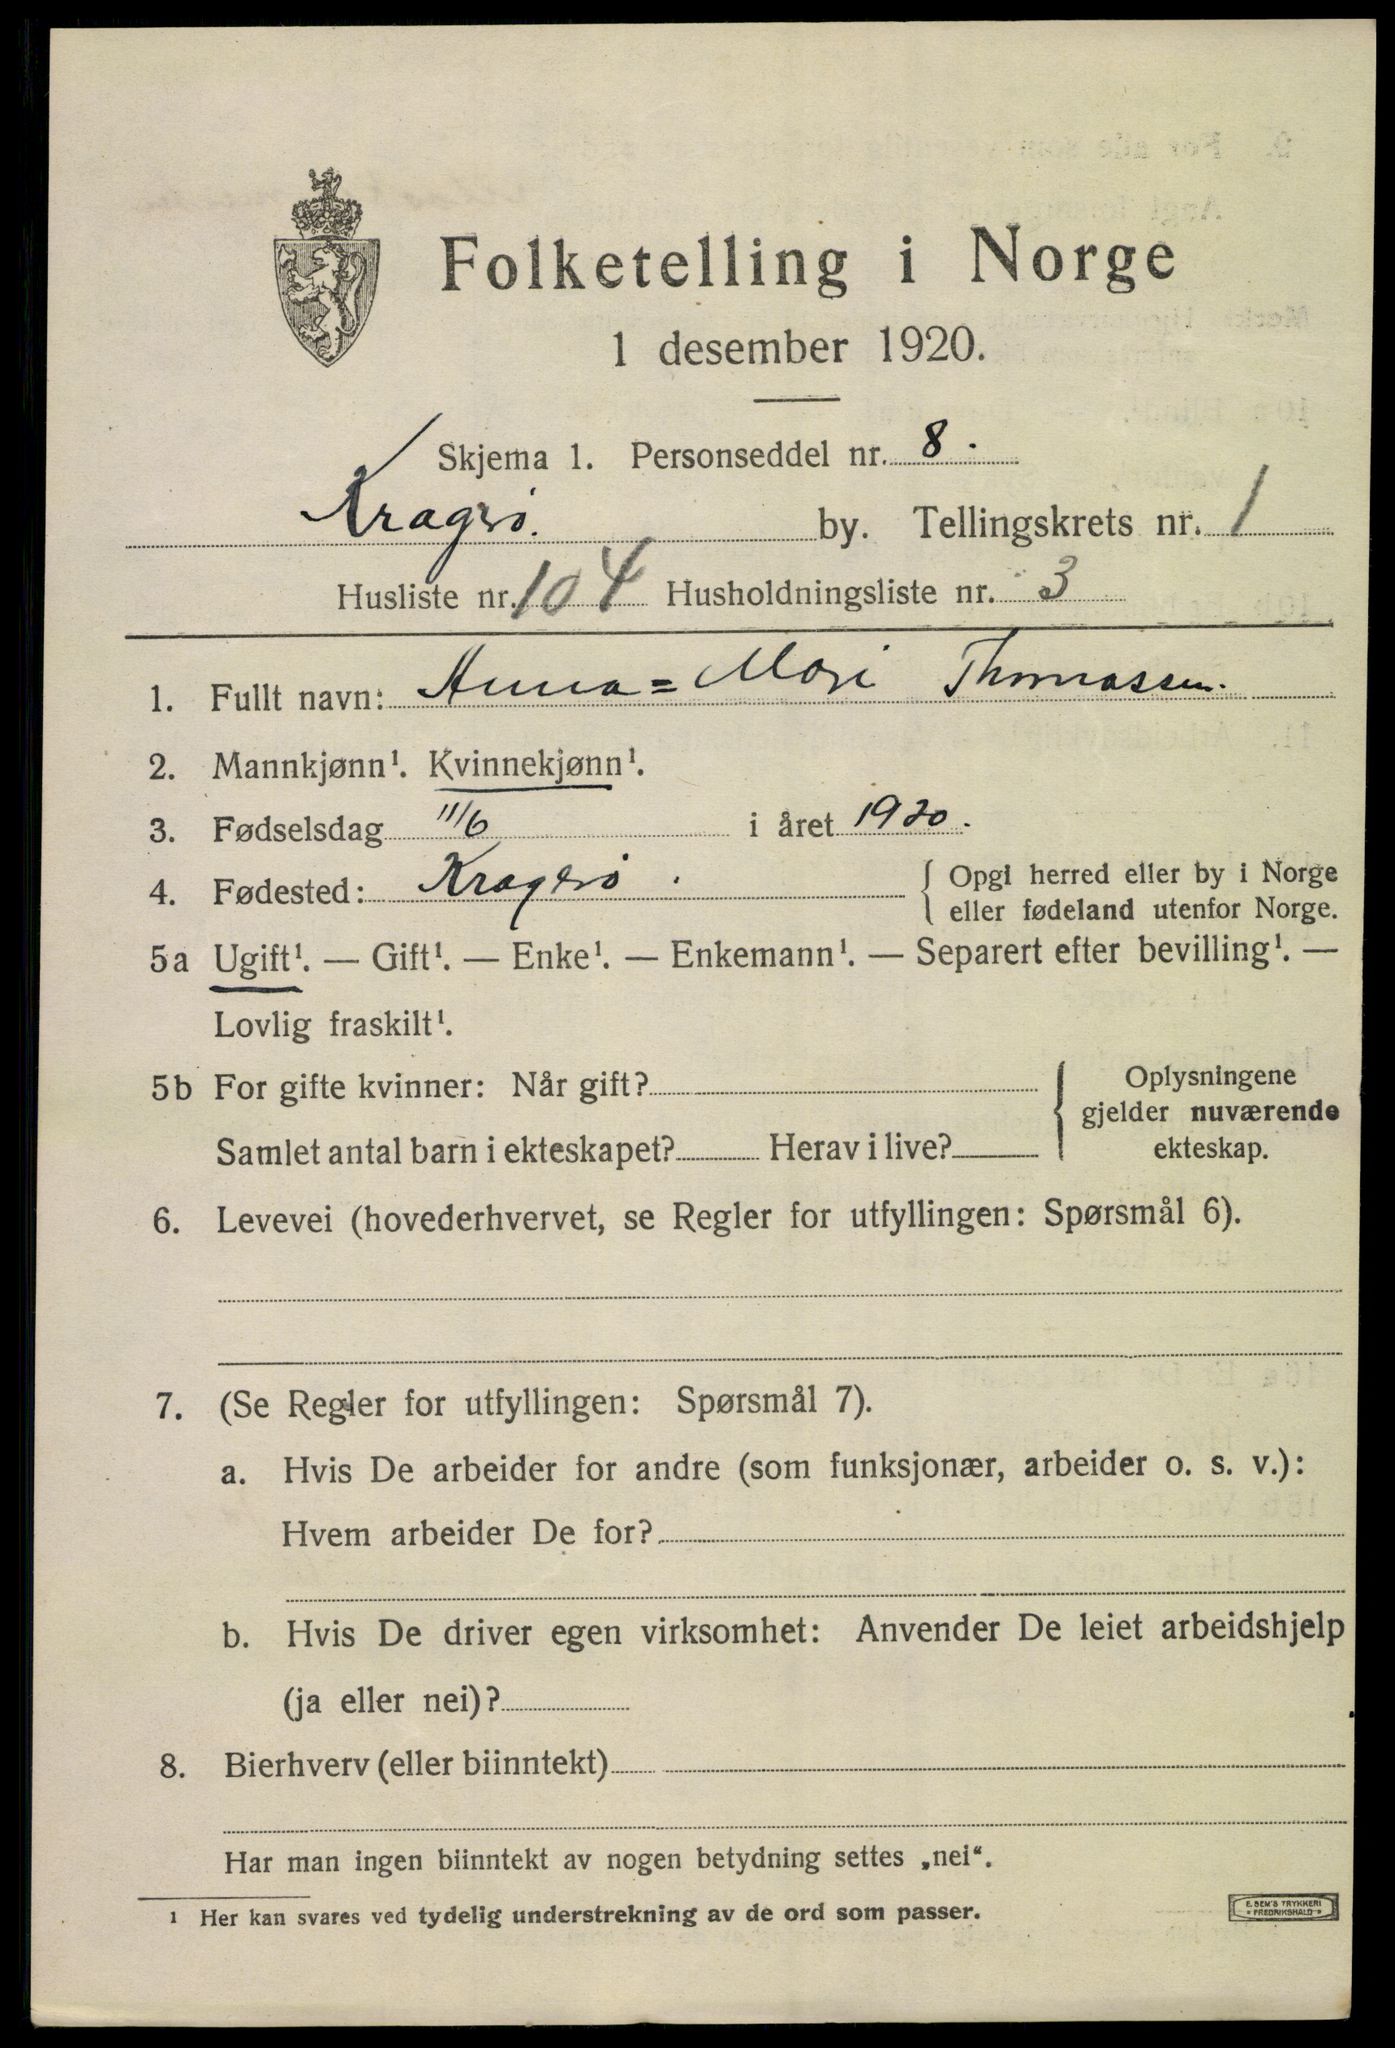 Folketelling i Norge
1 desember 1920.
Skjema 1. Personseddel nr. 8.
Kragerø. by. Tellingskrets nr. 1
Husliste nr. 104 Husholdningsliste nr. 3
1. Fullt navn: Anna=Mari Thomassen.
2. Mannkjønn¹. Kvinnekjønn¹.
3. Fødselsdag 11/6 i året 1920.
4. Fødested: Kragerø. { Opgi herred eller by i Norge
eller fødeland utenfor Norge.
5a Ugift¹. — Gift¹. — Enke¹. — Enkemann¹. — Separert efter bevilling¹. —
Lovlig fraskilt¹.
5b For gifte kvinner: Når gift? { Oplysningene
gjelder nuværende
Samlet antal barn i ekteskapet? Herav i live? ekteskap.
6. Levevei (hovederhvervet, se Regler for utfyllingen: Spørsmål 6).
7. (Se Regler for utfyllingen: Spørsmål 7).
a. Hvis De arbeider for andre (som funksjonær, arbeider o. s. v.):
Hvem arbeider De for?
b. Hvis De driver egen virksomhet: Anvender De leiet arbeidshjelp
(ja eller nei)?
8. Bierhverv (eller biinntekt)
Har man ingen biinntekt av nogen betydning settes „nei“.
¹ Her kan svares ved tydelig understrekning av de ord som passer.
E. SEM'S TRYKKERI
* FREDRIKSHALD *